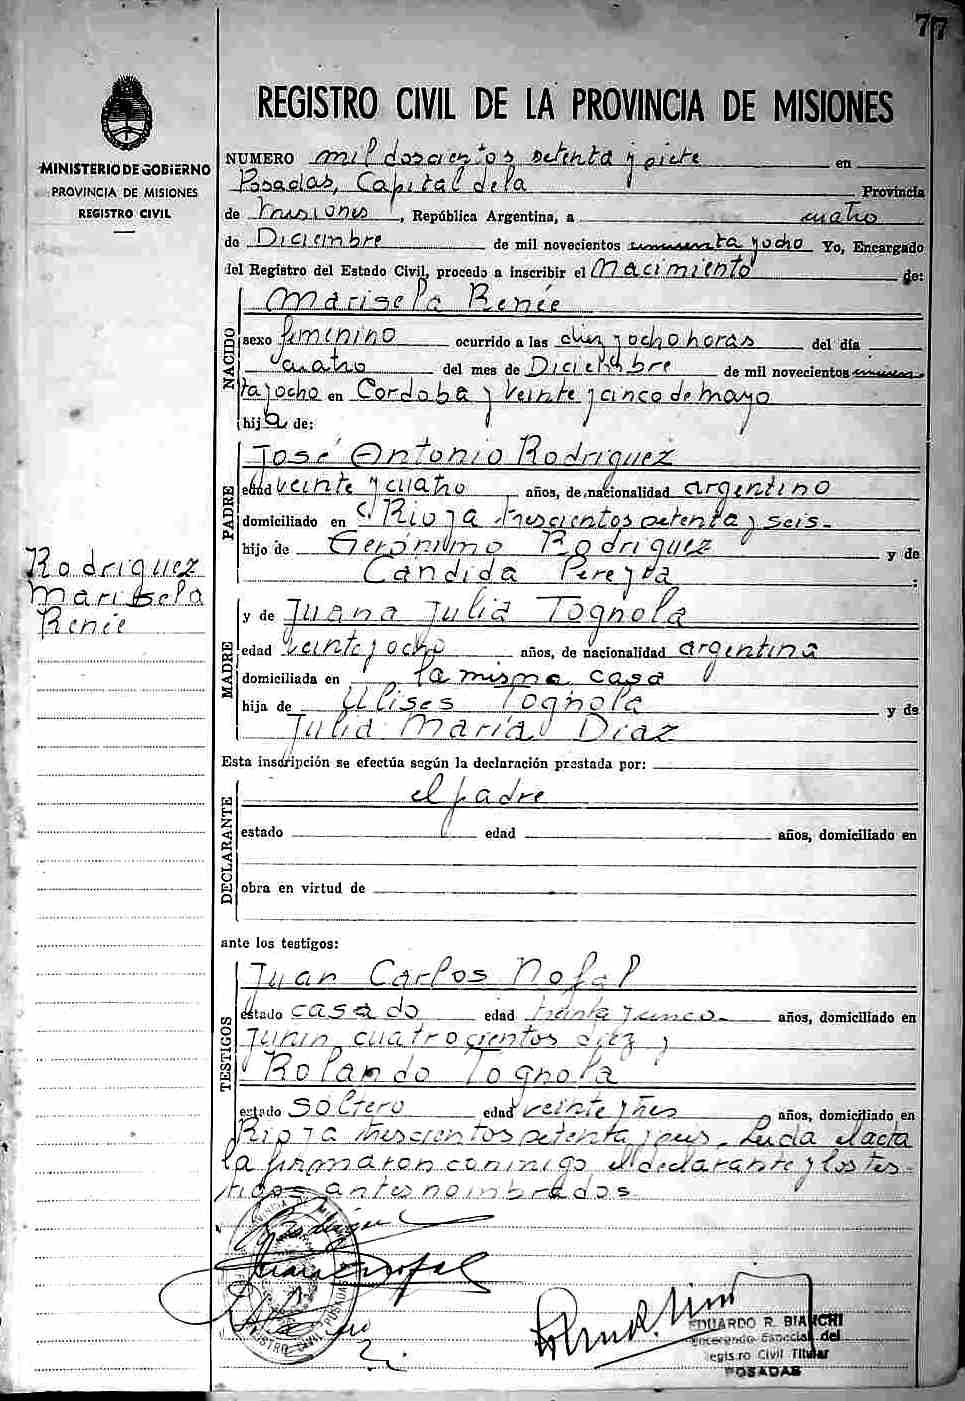 77
REGISTRO CIVIL DE LA PROVINCIA DE MISIONES
MINISTERIO DE GOBIERNO
PROVINCIA DE MISIONES
REGISTRO CIVIL
NUMERO mil doscientos setenta y siete en
Posadas, Capital de la Provincia
de Misiones, República Argentina, a cuatro
de Diciembre de mil novecientos cincuenta y ocho Yo, Encargado
del Registro del Estado Civil, procedo a inscribir el Nacimiento de:
NACIDO
Marisela Renée
sexo femenino ocurrido a las diez y ocho horas del día
cuatro del mes de Diciembre de mil novecientos cincuen-
ta y ocho en Cordoba y Veinte y cinco de mayo
hija de:
PADRE
José Antonio Rodriguez
edad veinte y cuatro años, de nacionalidad argentino
domiciliado en Rioja trescientos setenta y seis.
hijo de Gerónimo Rodriguez y de
Candida Pereyra :
Rodriguez
Marisela
Renée
MADRE
y de Juana Julia Tognola
edad veinte y ocho años, de nacionalidad argentina
domiciliada en la misma casa
hija de Ulises Tognola y de
Julia María Diaz
Esta inscripción se efectúa según la declaración prestada por:
DECLARANTE
el padre
estado edad años, domiciliado en
obra en virtud de
ante los testigos:
TESTIGOS
Juan Carlos Nofal
estado casado edad treinta y cinco años, domiciliado en
Junin cuatrocientos diez y
Rolando Tognola
estado soltero edad veinte y tres años, domiciliado en
Rioja trescientos setenta y seis. Leida el acta
la firmaron conmigo el declarante y los tes-
tigos antes nombrados.
EDUARDO R. BIANCHI
Encargado Especial del
Registro Civil Titular
POSADAS